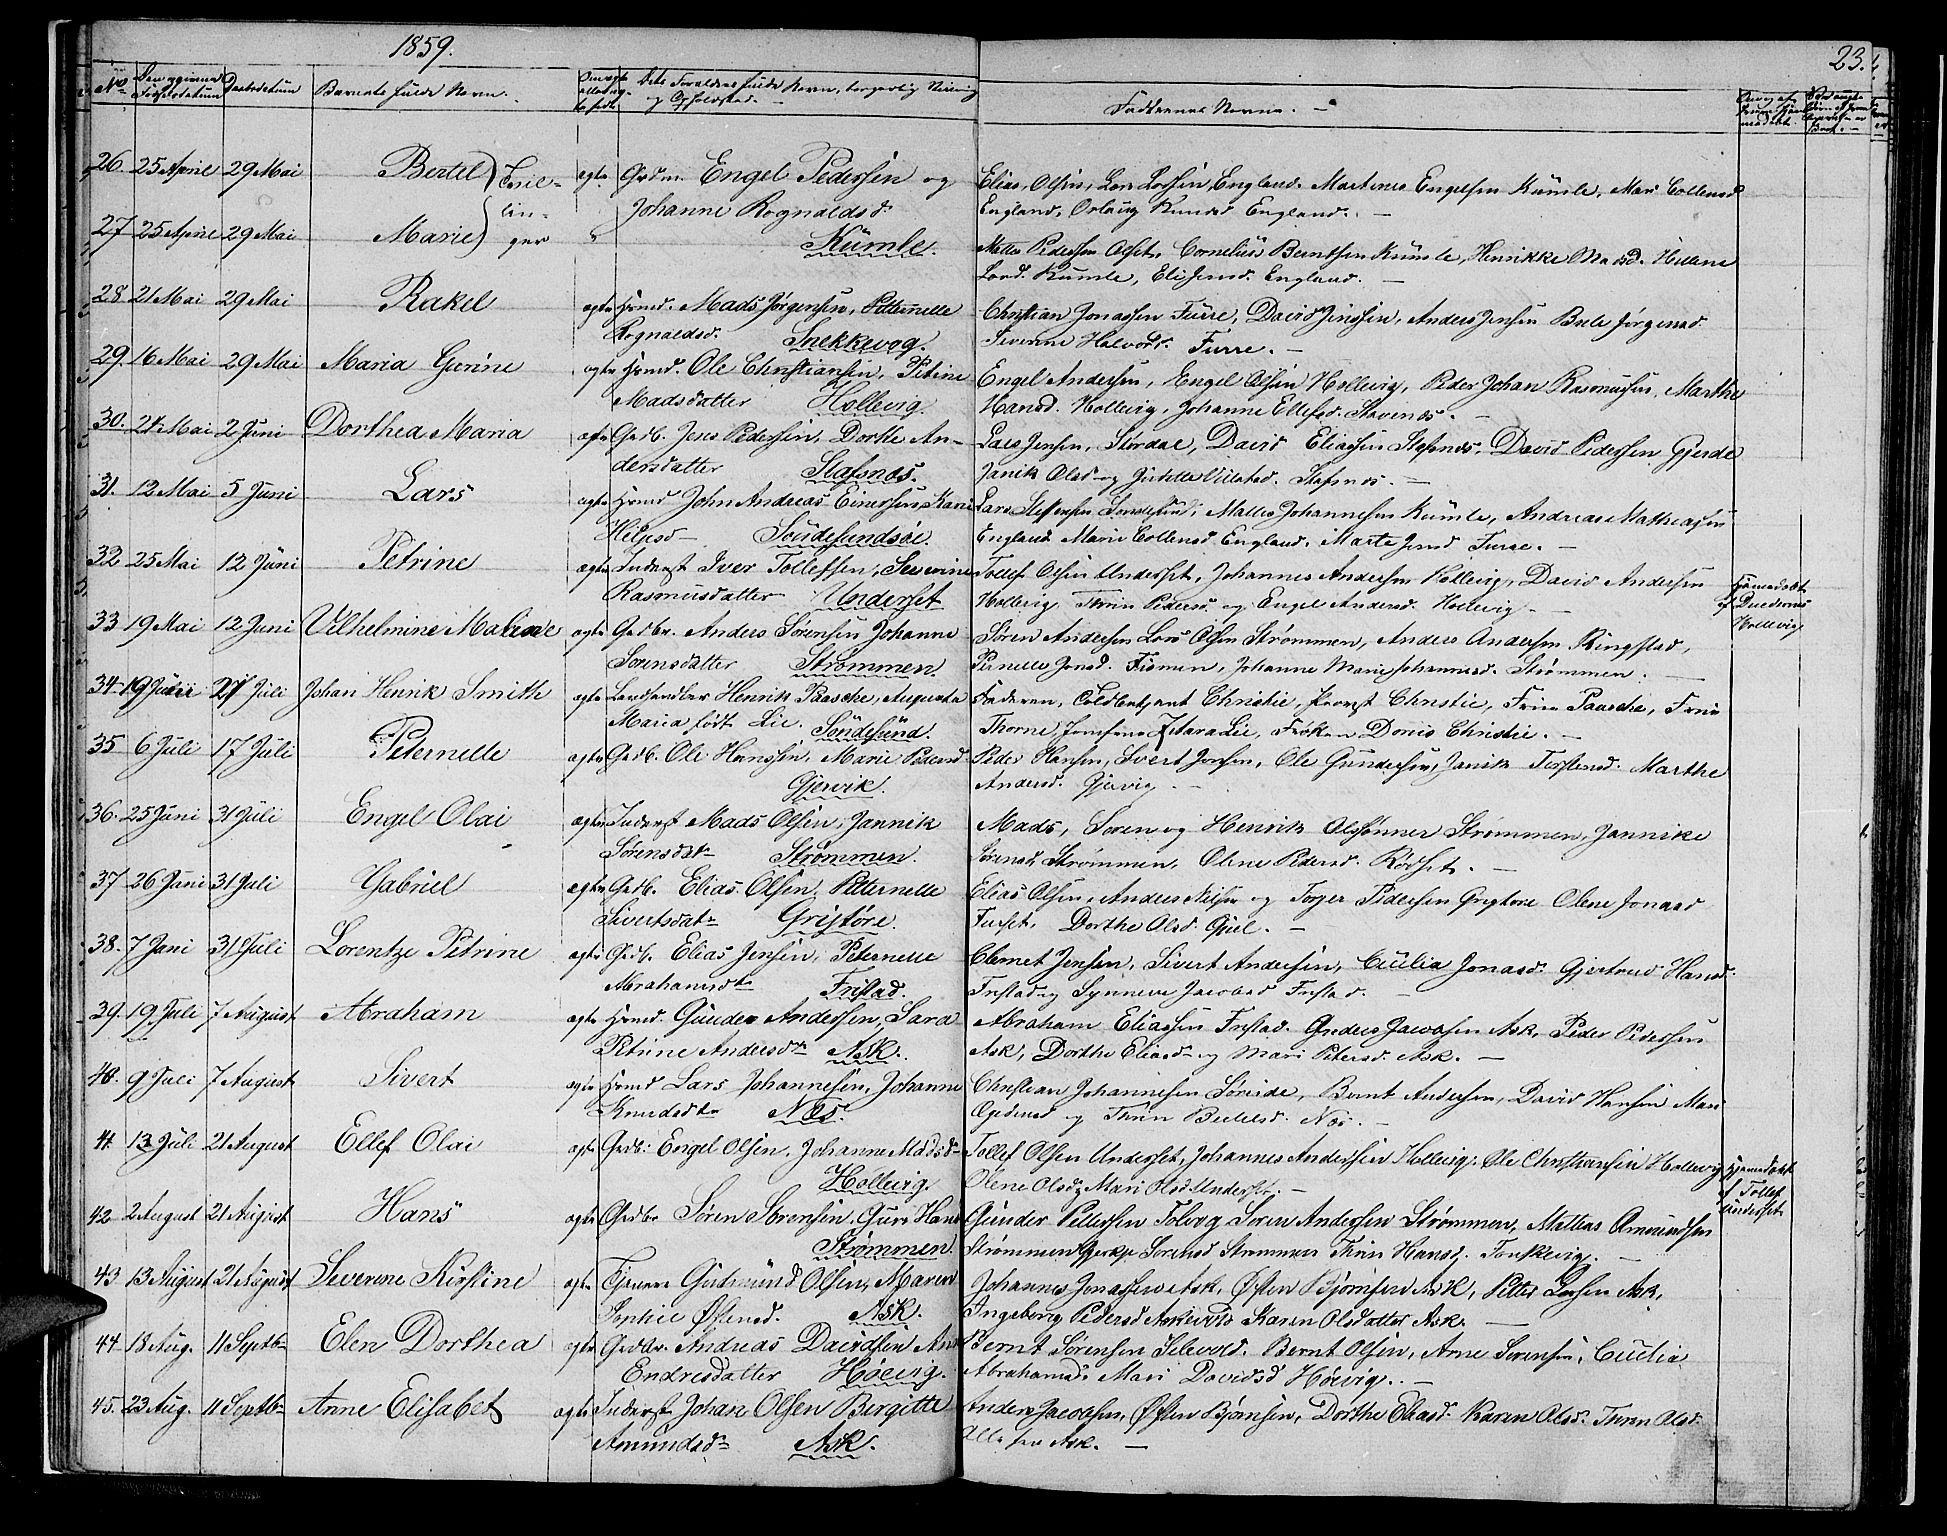 1859.
23.
No Dåbsdatum Barnets fulde Navn.
Faddernes Navne. —
26. 25 April 29 Mai Bertel ægte Grdm. Engel Pedersen og
Johanne Rognaldsd.
27 25 April 29 Mai Marie
Kumle.
Elias Olsen, Lars Larsen England. Martinus Engelsen Kumle, Mari Collensd
England, Knudsd England. —
Pedersen Olset, Cornelius Berntsen Kumle, Henrikke Madsd. Hellene
Larsd. Kumle, Eli Jensd. England. —
28 21 Mai 29 Mai Rakel ægte Hmd. Mads Jørgensen, Petternelle
Rognaldsd. Snekkevog.
Christian Jonassen Furre, David Jenssen, Anders Jensen Jørgensd
Severine Halvorsd. Furre. —
29. 16 Mai 29 Mai Maria Gurine ægte Hmd. Ole Christiansen, Petrine
Madsdatter Hollevig.
Engel Andersen, Engel Olsen Hollevig, Peder Johan Rasmussen, Marthe
Hansd. Hollevig, Johanne Ellefsd. Stavenæs. —
30. 21 Mai 2 Juni Dorthea Maria ægte Grdb. Jens Pedersen, Dorthe An-
dersdatter Stafsnæs.
Lars Jensen, Stordal, David Eliassen Stafsnæs, David Pedersen Gjerde
Janik Olsd og Villatsd. Stafsnæs. —
31. 12 Mai 5 Juni Lars ægte Hmd John Andreas Einersen, Kari
Helgesd Søndesundsøe.
Lars Steffensen Søndesund, Mattis Johannesen Kumle, Andreas Mathiasen
England Marie Collensd England. Marte Jensd Furre. —
32 25 Mai 12 Juni Petrine ægte Inderst Iver Tollefsen, Severine
Rasmusdatter Underset
Tollef Olsen Underset, Johannes Andersen Hollevig, David Andersen
Hollevig Thrin Pedersd. og Engel Andersd. Hollevig —
Hjemmedøbt
af
Hollevig
33 19 Mai 12 Juni Vilhelmine Malene ægte Grdbr. Anders Sørensen Johanne
Sørensdatter Strømmen.
Søren Andersen Lars Olsen Strømmen, Anders Andersen Ringstad,
Pernelle Jonsd. Fismen, Johanne Marie Johannesd. Strømmen. —
34 19 Juni 27 Juli Johan Henrik Smith ægte Landhandler Henrik Paasche, Augusta
Maria født Lie. Søndesund.
Faderen, Toldbetjent Christie, Provst Christie, Frue Paasche, Frue
Thorne, Jomfrue Mara Lie, Frøken Doris Christie. —
35 6 Juli 17 Juli Peternelle ægte Grdb. Ole Hansen, Marie Pedersd
Gjervik.
Peder Hansen, Sivert Jonsen, Ole Gundersen, Janik Torstensd. Marthe
Andersd. Gjervig —
36. 25 Juni 31 Juli Engel Olai ægte Inderst Mads Olsen, Jannik
Sørensdat Strømmen.
Mads, Søren og Henrik Olssønner Strømmen, Jannike
Sørensd. Strømmen, Olene Pedersd. Rødset. —
37 26 Juni 31 Juli Gabriel ægte Grdb. Elias Olsen, Petternelle
Sivertsdat Gristøre.
Elias Olsen, Anders Nilsen og Torger Pedersen Grigtøre Olene Jonasd
Furset, Dorthe Olsd. Gjul. —
38. 7 Juni 31 Juli Lorentze Petrine ægte Grdb. Elias Jensen, Peternelle
Abrahamsdt Frestad.
Clemet Jensen, Sivert Andersen, Cecilia Jonasd. Gjertrud Hansd.
Frestad og Synneve Jacobsd Frestad. —
39. 19 Juli 7 August Abraham ægte Hmd. Gunder Andersen, Sara
Petrine Andersdt Ask.
Abraham Eliassen Frestad. Anders Jacobsen Ask, Peder Pedersen
Ask, Dorthe Eliasd og Mari Petersd Ask. —
40. 9 Juli 7 August Sivert ægte Hmd Lars Johannesen, Johanne
Knudsdt Næs.
Christian Johannesen Søreide, Bernt Andersen, David Hansen Mari
og Thrin Næs. —
41. 13 Juli 21 August Ellef Olai ægte Grdb. Engel Olsen, Johanne Madsd
Hollevig.
Tollef Olsen Underset, Johannes Andersen Hollevig. Ole Christiansen Hollevig
Olene Olsd, Mari Olsd Underset. —
Hjemmedøbt
af Tollef
Underset
42 2 August 21 August Hans ægte Grdbr Søren Sørensen, Guri Hans
Strømmen.
Gunder Pettersen Tolvig Søren Andersen Strømmen, Mattias Amundsen
Strømmen, Sørensd Strømmen Thrin Hansd. —
43 13 August 21 August Severine Kirstine ægte Tjenere Gudmund Olsen, Maren
Sophie Østensd. Ask.
Johannes Jonassen Ask, Østen Bjørnsen Ask, Petter Larsen Ask,
Ingeborg Pedersd Askevold Karen Olsdatter Ask. —
44 18 Aug. 11 Septb Elen Dorthea ægte Grdbr. Andreas Davidsen Ane
Endresdatter Høevig.
Bernt Sørensen Selevold. Bernt Olsen, Arne Sørensen, Cecilia
Abrahamsd. Mari Davidsd Høevig. —
45. 23 Aug. 11 Septb Anne Elisabet ægte Inderst Johan Olsen Birgitte
Amundsd Ask.
Anders Jacobsen, Østen Bjørnsen, Dorthe Eliasd. Karen Olsd. Thrin Olsd.
Alle fra Ask. —